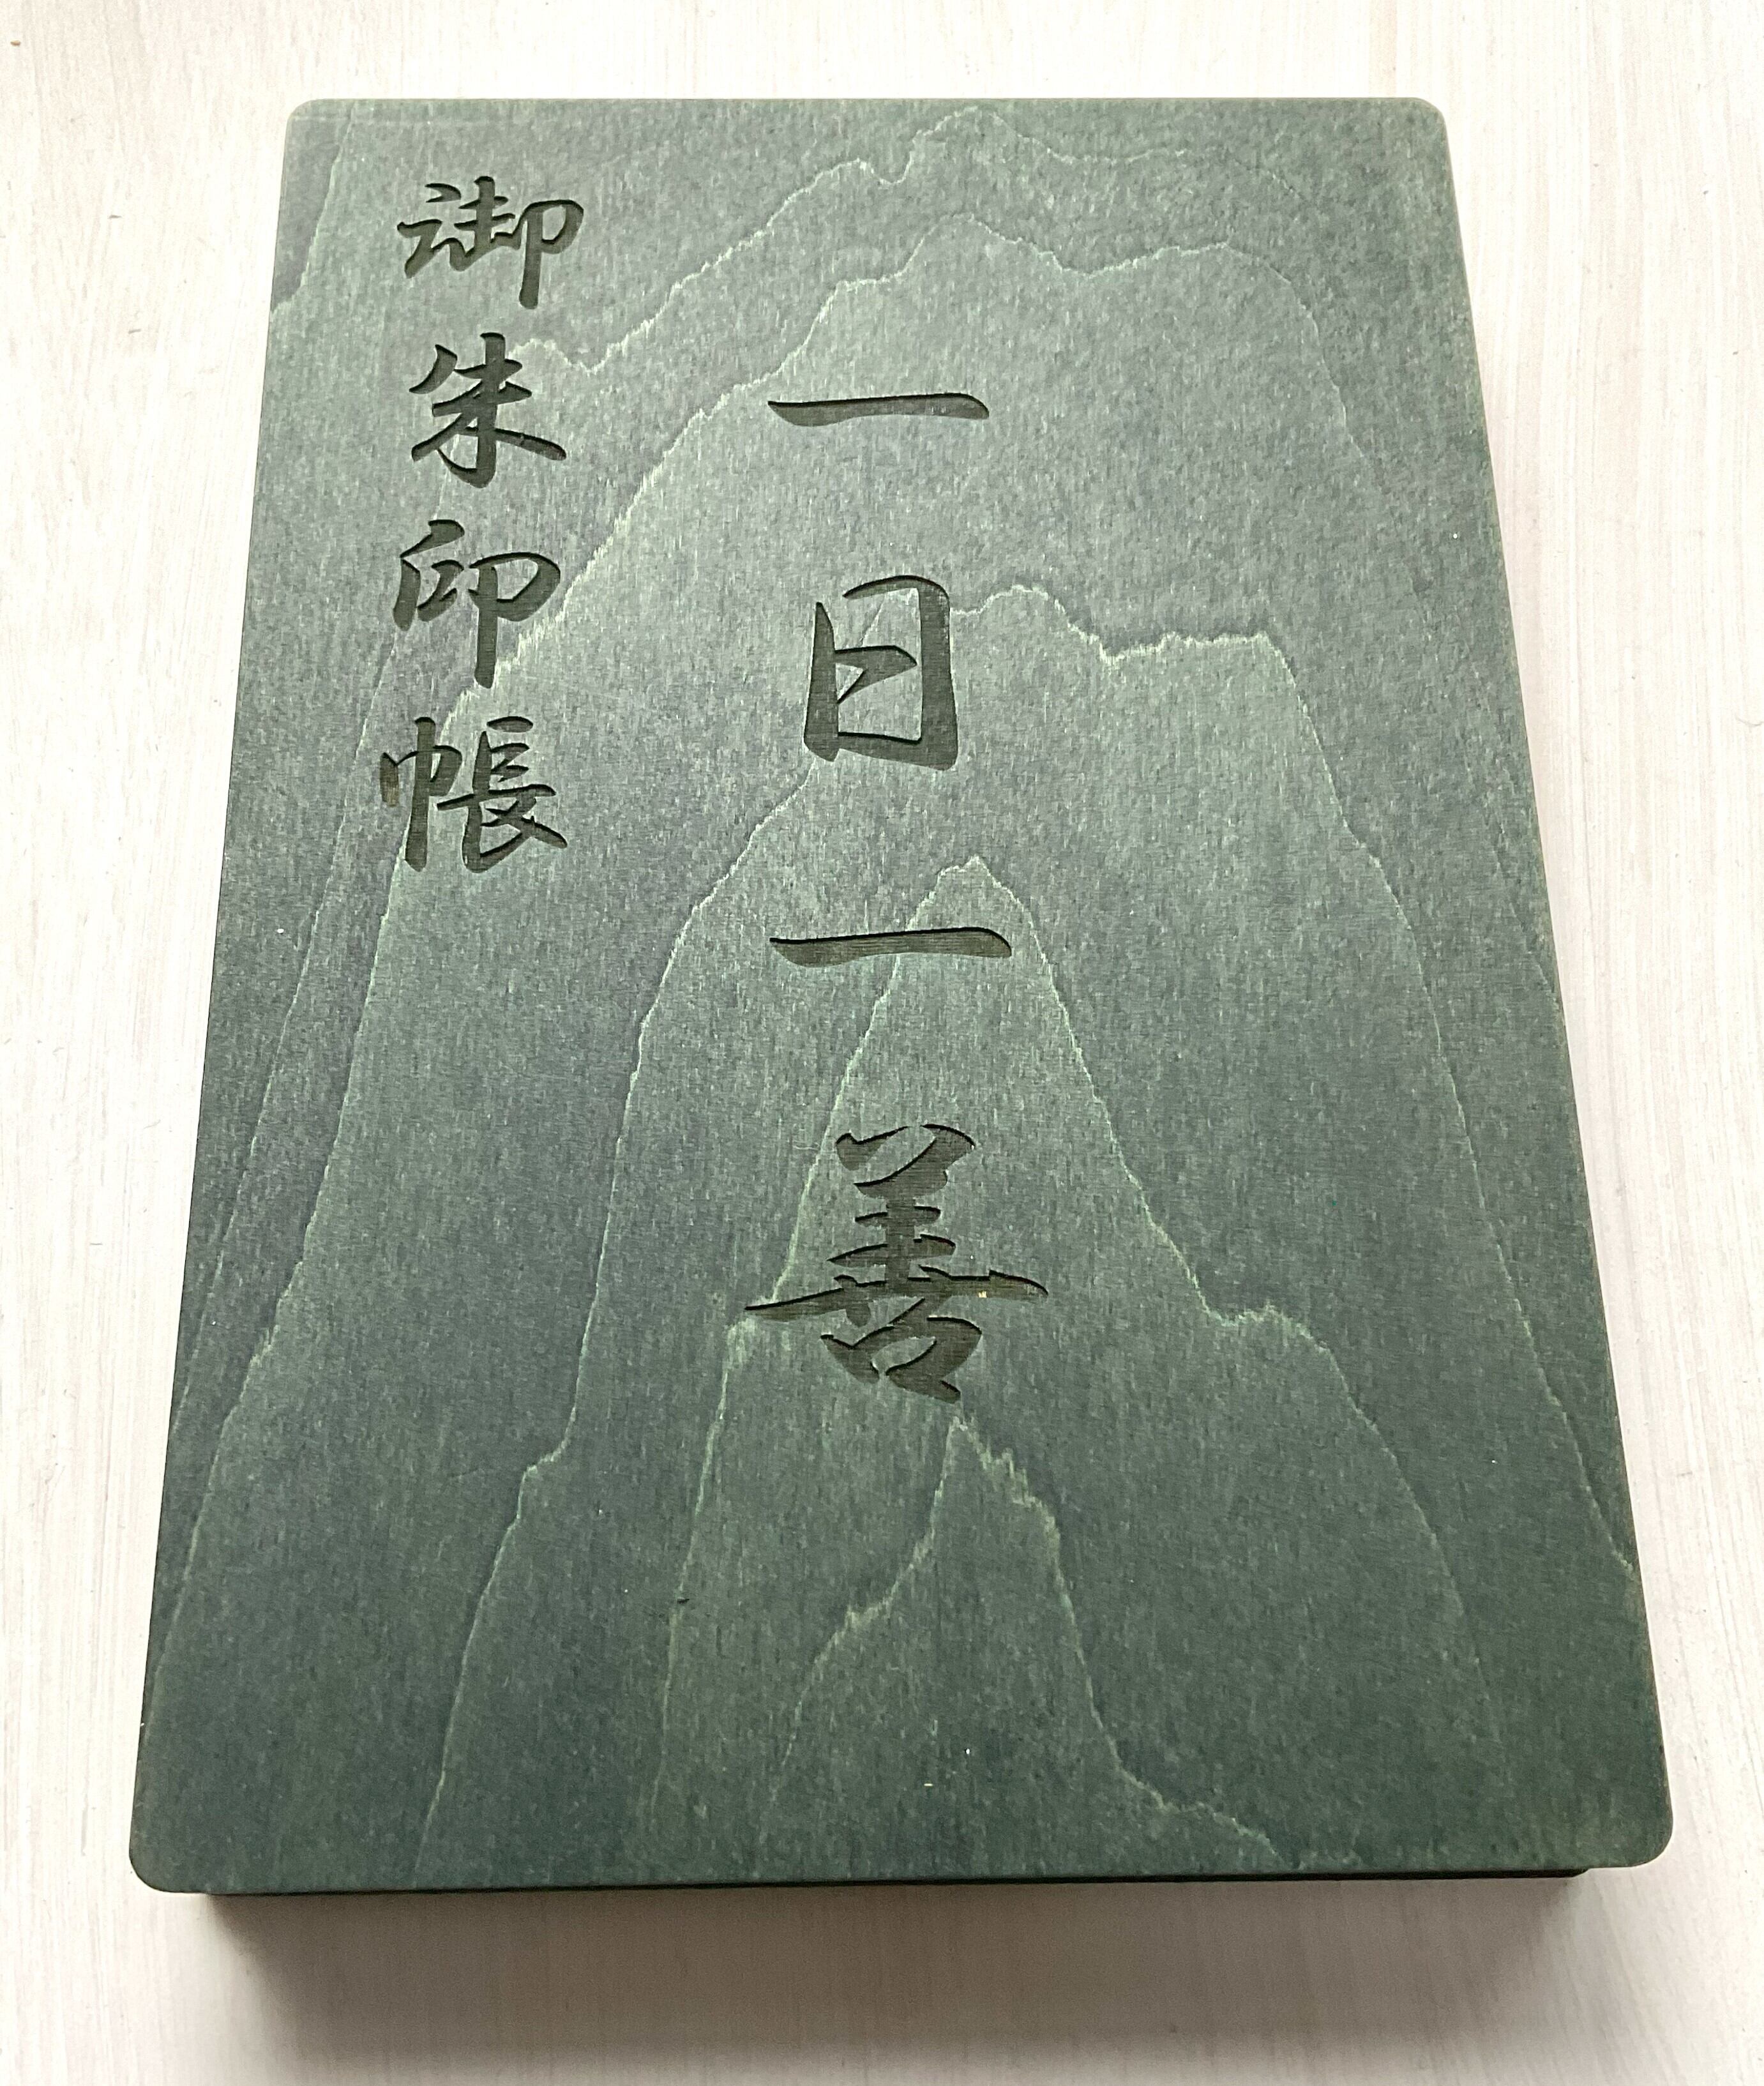 御朱印帳
一日一善